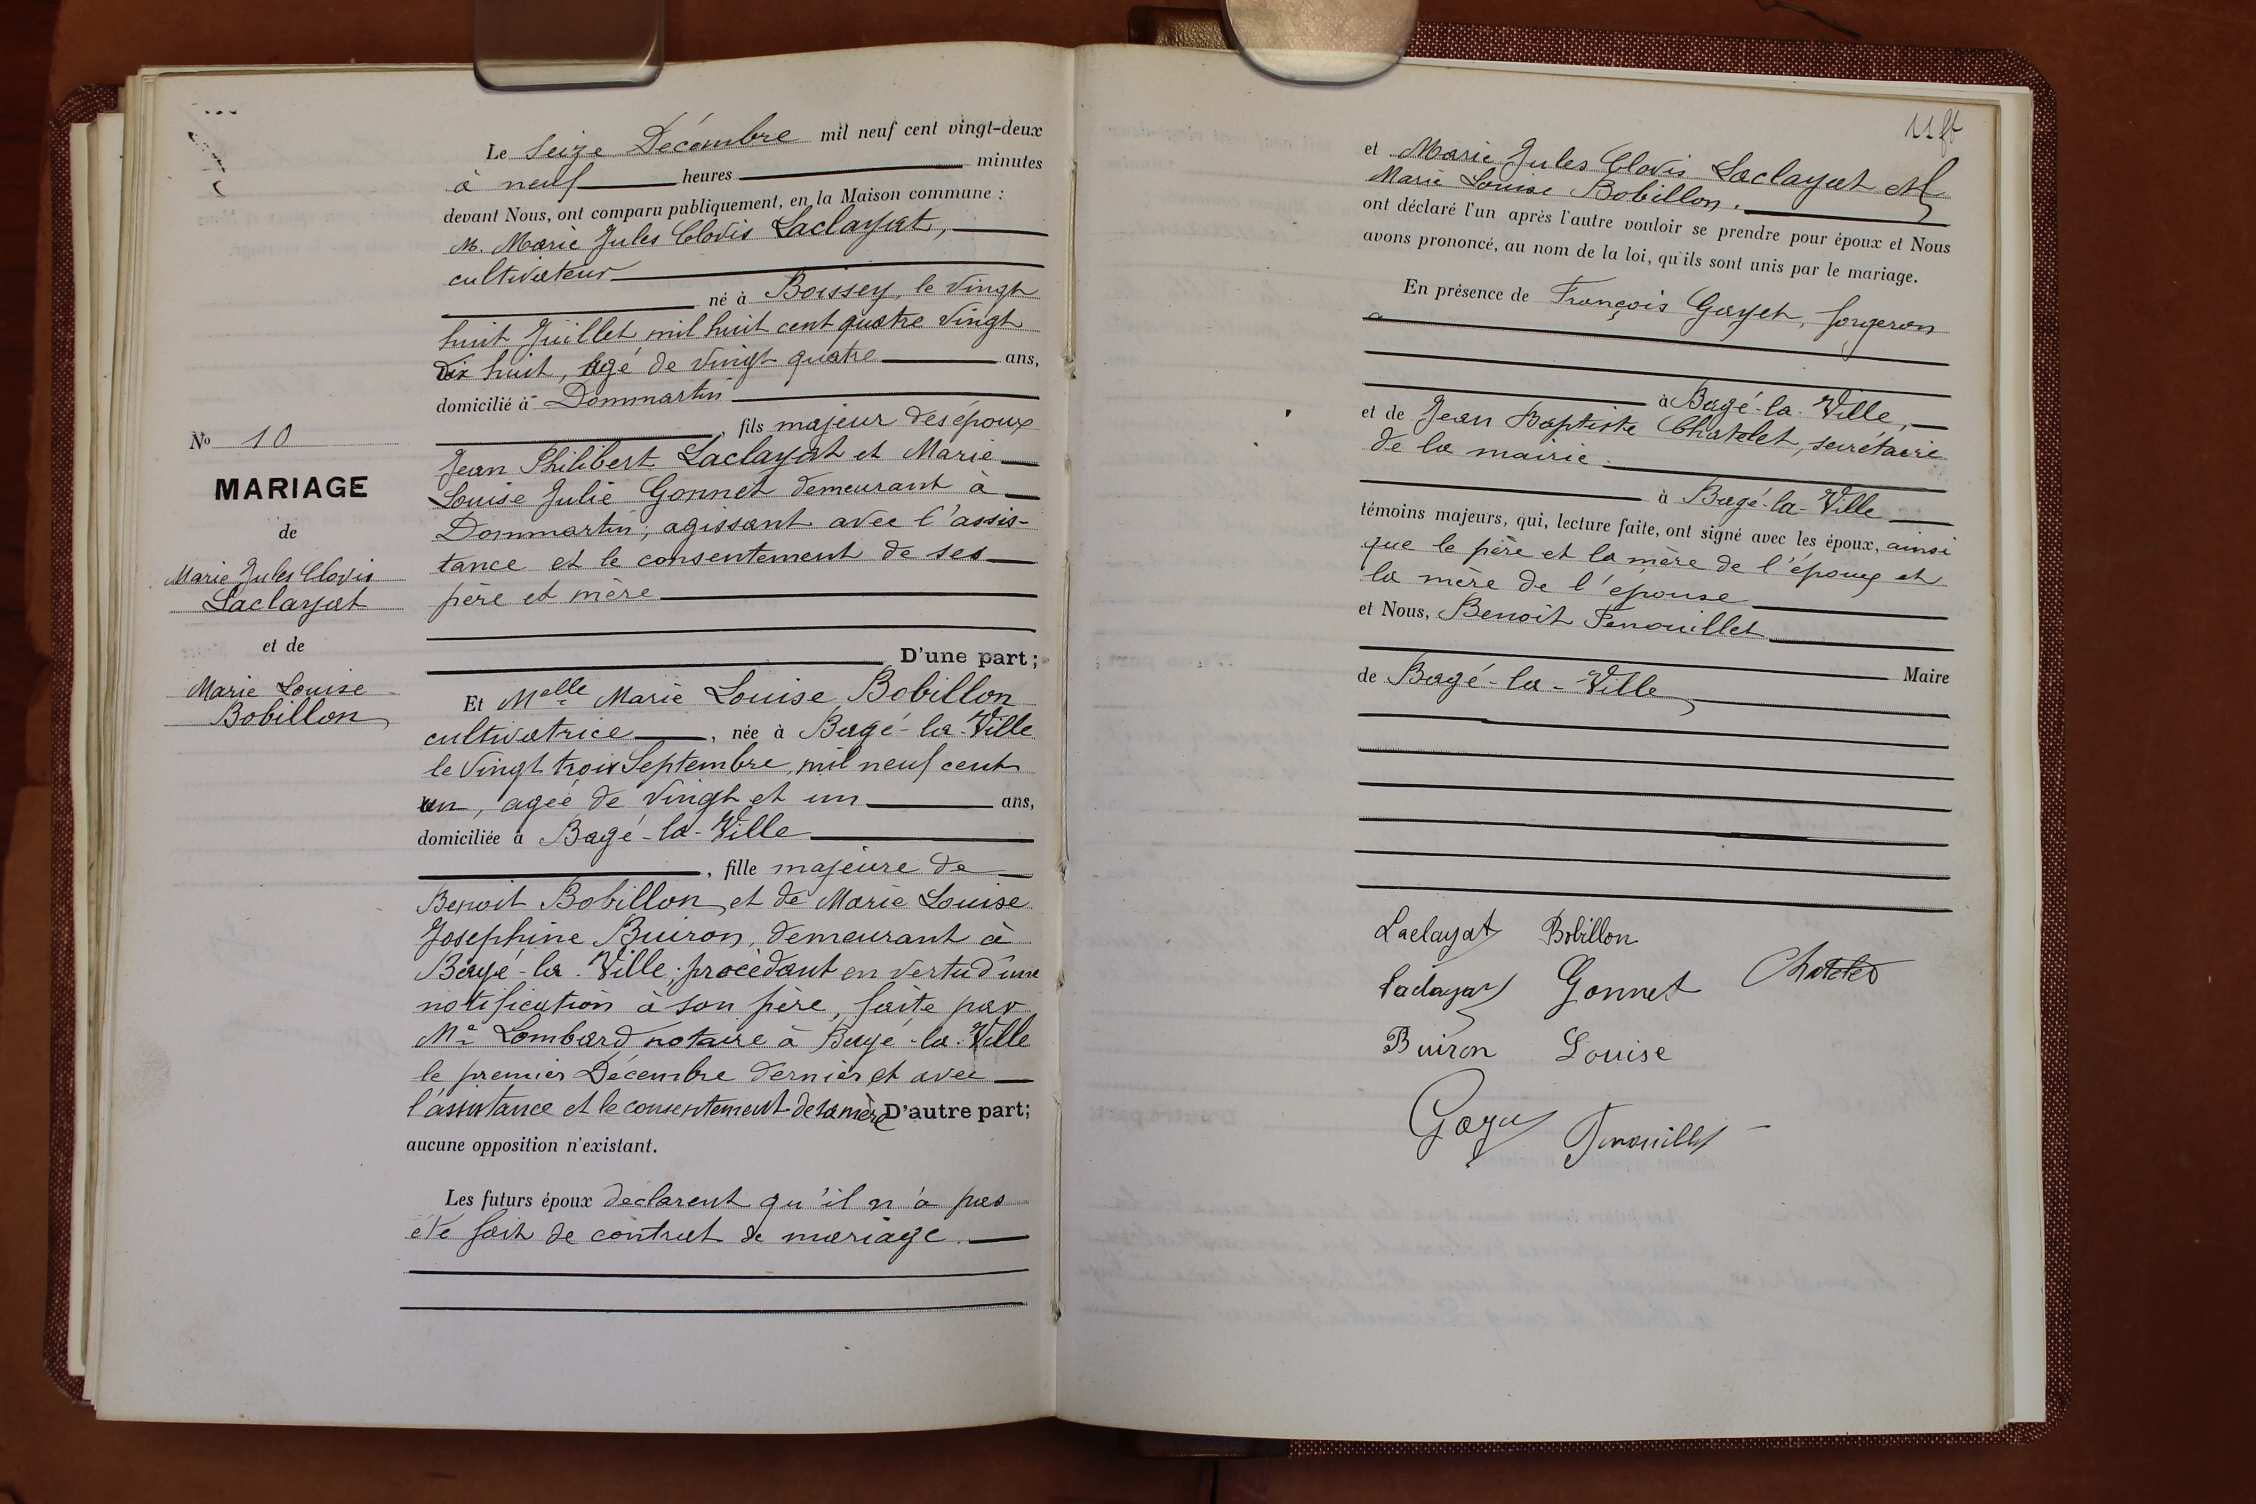 Le seize Décembre mil neuf cent vingt-deux
à neuf heures minutes
devant Nous, ont comparu publiquement, en la Maison commune :
M. Marie Jules Clovis Laclayat,
cultivateur
né à Boissey, le vingt
huit Juillet mil huit cent quatre vingt
dix huit, agé de vingt quatre ans,
domicilié à Dommartin
, fils majeur des époux
Jean Philibert Laclayat et Marie
Louise Julie Gonnet demeurant à
Dommartin, agissant avec l'assis-
tance et le consentement de ses
père et mère
D'une part ;
No 10
MARIAGE
de
Marie Jules Clovis
Laclayat
et de
Marie Louise
Bobillon
Et Melle Marie Louise Bobillon
cultivatrice, née à Bagé-la-Ville
le vingt trois Septembre, mil neuf cent
un, agée de vingt et un ans,
domiciliée à Bagé-la-Ville
, fille majeure de
Benoit Bobillon, et de Marie Louise
Josephine Buiron, demeurant à
Bagé-la-Ville ; procédant en vertu d'une
notification à son père, faite par
Me Lombard notaire à Bagé-la-Ville
le premier Décembre dernier et avec
l'assistance et le consentement de sa mère D'autre part ;
aucune opposition n'existant.
Les futurs époux déclarent qu'il n'a pas
été fait de contrat de mariage.
11
et Marie Jules Clovis Laclayat et
Marie Louise Bobillon.
ont déclaré l'un après l'autre vouloir se prendre pour époux et Nous
avons prononcé, au nom de la loi, qu'ils sont unis par le mariage.
En présence de François Gayet, forgeron
à Bagé-la-Ville,
et de Jean Baptiste Chatelet, secrétaire
de la mairie.
à Bagé-la-Ville
témoins majeurs, qui, lecture faite, ont signé avec les époux, ainsi
que le père et la mère de l'époux et
la mère de l'épouse
et Nous, Benoît Fenouillet
Maire
de Bagé-la-Ville
Laclayat Bobillon
Laclayat Gonnet Chatelet
Buiron Louise
Gayet Fenouillet